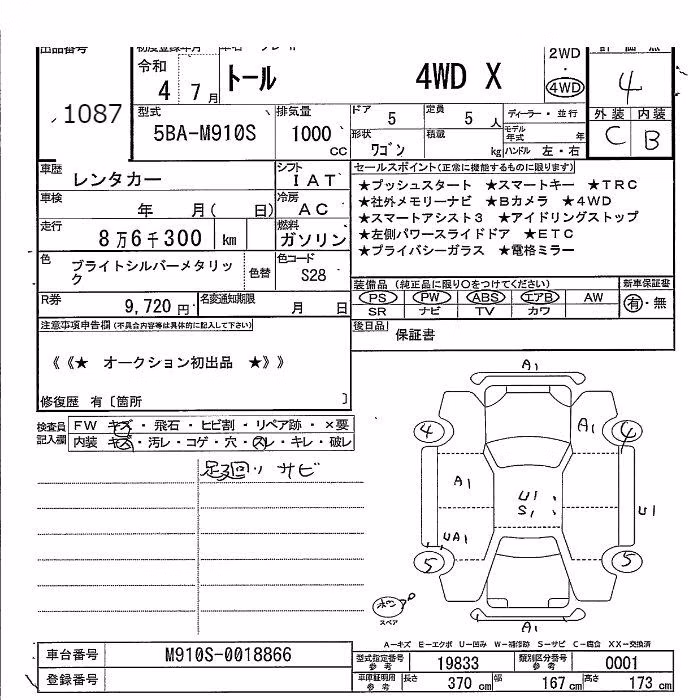 出品番号
1087
初度登録年月
令和
4 7月
トール
4WD X
2WD
4WD
4
外装 内装
C B
型式
5BA-M910S
排気量
1000 CC
ドア
5
定員
5 人
形状
ワゴン
積載
kg
ディーラー・並行
モデル年式 年
ハンドル 左・右
車歴
レンタカー
シフト
IAT
車検
年 月( 日)
冷房
AC
走行
8万6千300 km
燃料
ガソリン
色
ブライトシルバーメタリック
色替
色コード
S28
R券
9,720円
名変通知期限
月 日
セールスポイント(正常に機能するものに限ります)
★プッシュスタート ★スマートキー ★TRC
★社外メモリーナビ ★Bカメラ ★4WD
★スマートアシスト3 ★アイドリングストップ
★左側パワースライドドア ★ETC
★プライバシーガラス ★電格ミラー
装備品(純正品に限り○をつけてください)
PS PW ABS エアB AW
SR ナビ TV カワ
新車保証書
有・無
後日品
保証書
注意事項申告欄(不具合内容等は具体的に記入して下さい)
《《★ オークション初出品 ★》》
修復歴 有〔箇所 〕
検査員記入欄
FW キズ・飛石・ヒビ割・リペア跡・×要
内装 キズ・汚レ・コゲ・穴・スレ・キレ・破レ
足廻り サビ
A1
4
A1
4
A1
U1
S1
U1
UA1
5
5
スペア
A1
A-キズ E-エクボ U-凹み W-補修跡 S-サビ C-腐食 XX-交換済
車台番号
M910S-0018866
登録番号
型式指定番号参考
19833
類別区分番号参考
0001
車庫証明用参考
長さ 370 cm
幅 167 cm
高さ 173 cm